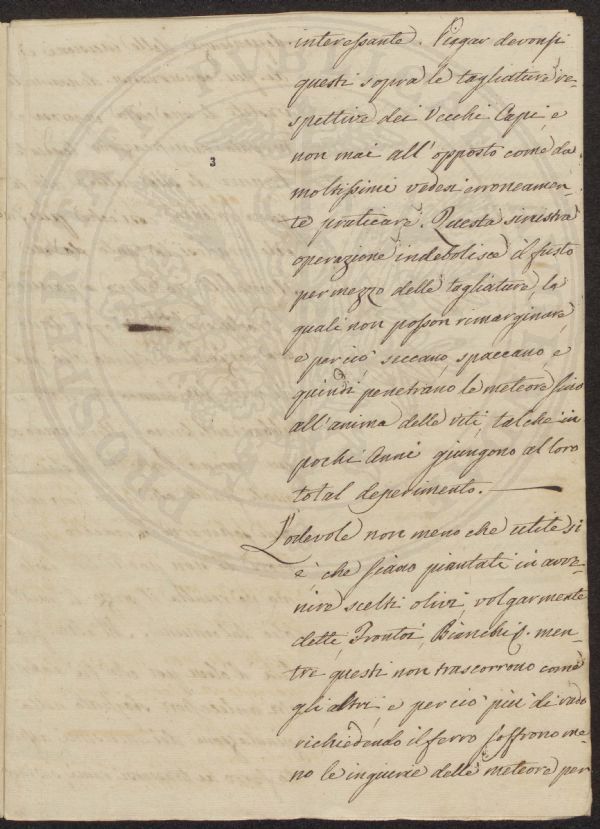 interessante. Piegar devonsi
questi sopra le tagliature re-
spettive dei Vecchi Capi, e
non mai all'opposto come da
3
moltissimi vedesi erroneamen-
te praticare. Questa sinistra
operazione indebolisce il fusto
per mezzo delle tagliature, la
quali non posson rimarginare
e perciò seccano, spaccano, e
quindi penetrano le meteore sino
all'anima delle viti, talche in
pochi Anni giungono al loro
total deperimento.
Lodevole non meno che utile si
è che siano piantati in avve-
nire scelti olivi, volgarmente
detti Frontoi, Bianchi. men-
tre questi non trascorrono come
gli altri, e perciò più di rado
richiedendo il ferro soffrono me-
no le ingiurie delle meteore per